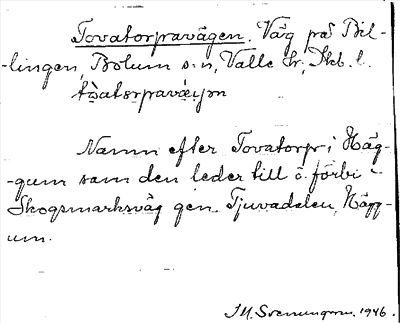 Tovatorpavägen. Väg på Bil-
-lingen, Bolum s:n, Valle hr, Skb. l.
Namn efter Tovatorp i Häg-
-gum som den leder till o. förbi -
Skogsmarksväg gen. Tjuvadalen, Hägg-
um.
1946.